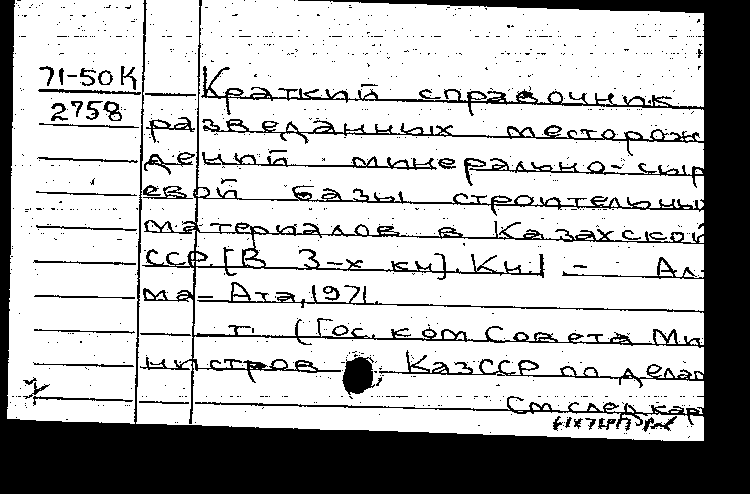 71-50К
2758
Краткий справочник
разведанных месторож
дений минерально-сыр
евой базы строительны
материалов в Казахской
ССР. [В 3-х кн]. Кн.1 - Ал-
ма-Ата, 1971.
т. (Гос. ком Совета Ми
нистров КазССР по делам
См. след кар